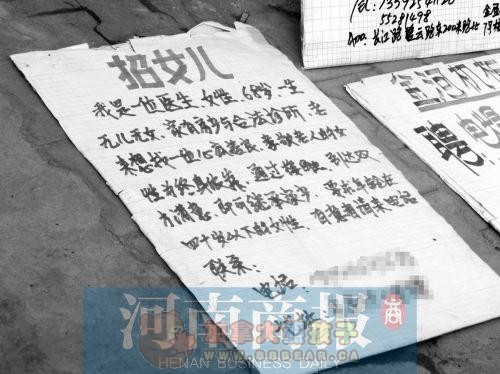 Tel:
55281498
招女儿
我是一位医生,女性、68岁一生
无儿无女,家有房产与合法诊所,老
来想找一位心底善良、孝敬老人的女
性为终身依靠,通过接触、到达双
方满意,即可继承家产、要求年龄在
四十岁以下的女性,有意者请来电话
联系:
电话:
聘
河南商报 商
HENAN BUSINESS DAILY